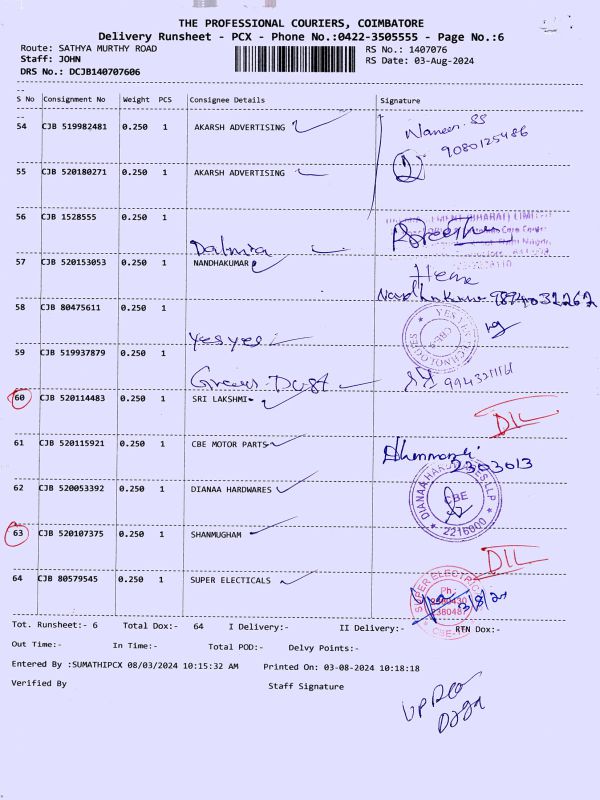 THE PROFESSIONAL COURIERS, COIMBATORE
Delivery Runsheet - PCX - Phone No.:0422-3505555 - Page No.:6
Route: SATHYA MURTHY ROAD RS No.: 1407076
Staff: JOHN RS Date: 03-Aug-2024
DRS No.: DCJB140707606
S No Consignment No Weight PCS Consignee Details Signature
54 CJB 519982481 0.250 1 AKARSH ADVERTISING
9080125486
55 CJB 520180271 0.250 1 AKARSH ADVERTISING
56 CJB 1528555 0.250 1 Dalmia
57 CJB 520153053 0.250 1 NANDHAKUMAR Hema
Nandhakumar 9894032262
58 CJB 80475611 0.250 1 yesyes
YES YES TECHNOLOGIES CBE-9
59 CJB 519937879 0.250 1 Greens Dust
60 CJB 520114483 0.250 1 SRI LAKSHMI DIL
61 CJB 520115921 0.250 1 CBE MOTOR PARTS
2303013
62 CJB 520053392 0.250 1 DIANAA HARDWARES
DIANAA HARDWARES LLP CBE 2216900
63 CJB 520107375 0.250 1 SHANMUGHAM DIL
64 CJB 80579545 0.250 1 SUPER ELECTICALS
SUPER ELECTRIC Ph: CBE 3/8/24
Tot. Runsheet:- 6 Total Dox:- 64 I Delivery:- II Delivery:- RTN Dox:-
Out Time:- In Time:- Total POD:- Delvy Points:-
Entered By :SUMATHIPCX 08/03/2024 10:15:32 AM Printed On: 03-08-2024 10:18:18
Verified By Staff Signature